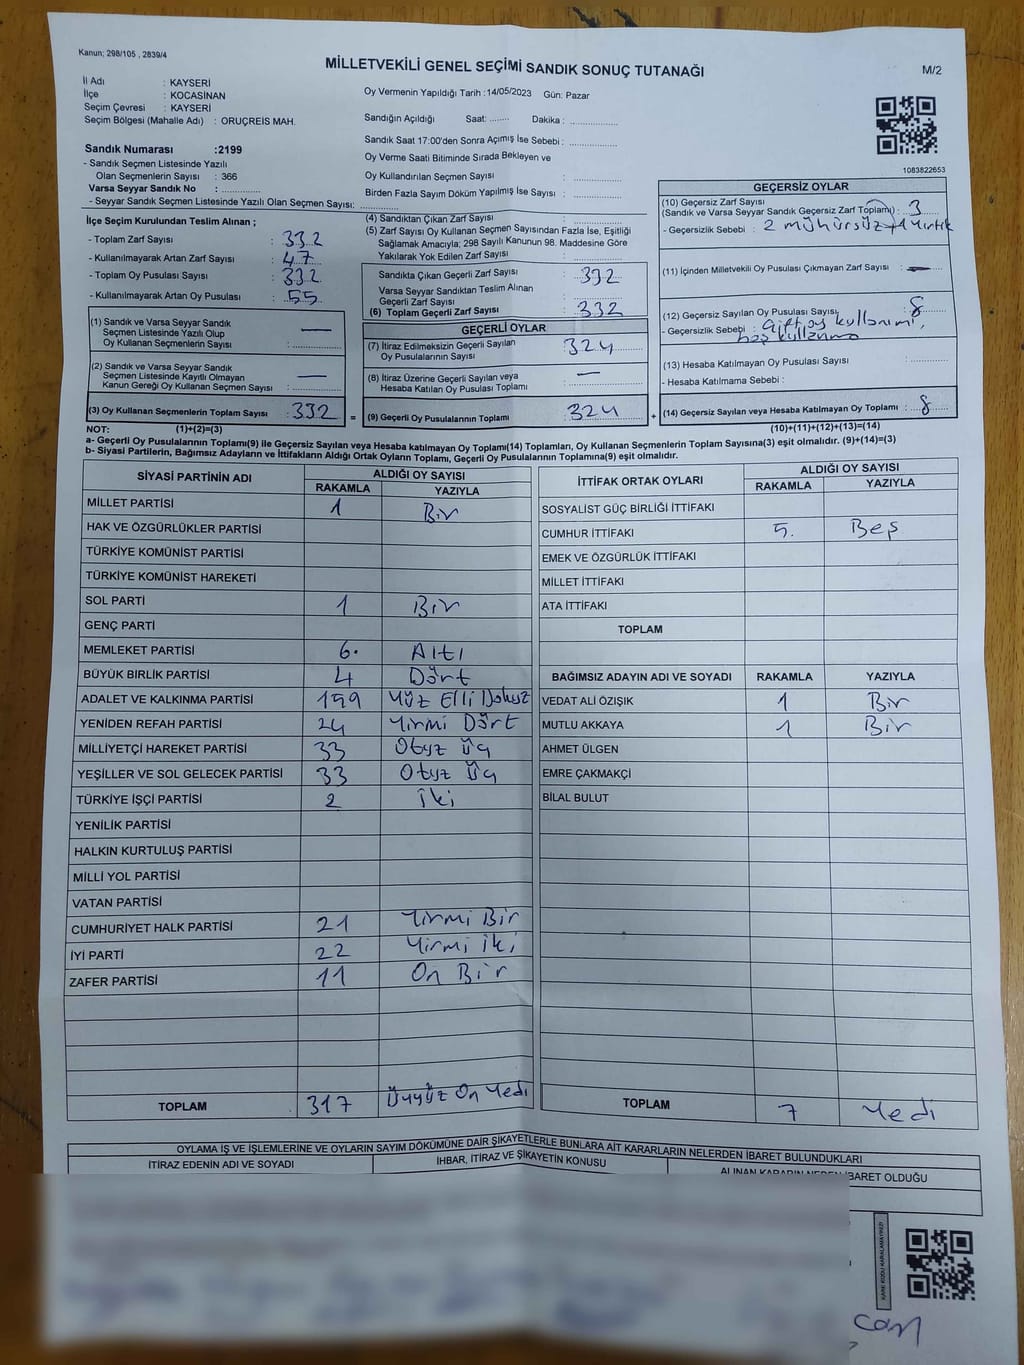 Kanun; 298/105 , 2839/4
MİLLETVEKİLİ GENEL SEÇİMİ SANDIK SONUÇ TUTANAĞI
M/2
İl Adı : KAYSERİ
İlçe : KOCASİNAN
Seçim Çevresi : KAYSERİ
Seçim Bölgesi (Mahalle Adı) : ORUÇREİS MAH.
Sandık Numarası :2199
- Sandık Seçmen Listesinde Yazılı
Olan Seçmenlerin Sayısı : 366
Varsa Seyyar Sandık No : ..............
- Seyyar Sandık Seçmen Listesinde Yazılı Olan Seçmen Sayısı: ..............
Oy Vermenin Yapıldığı Tarih :14/05/2023 Gün: Pazar
Sandığın Açıldığı Saat: ........ Dakika : ..............
Sandık Saat 17:00'den Sonra Açımış İse Sebebi : ..............
Oy Verme Saati Bitiminde Sırada Bekleyen ve
Oy Kullandırılan Seçmen Sayısı : ..............
Birden Fazla Sayım Döküm Yapılmış İse Sayısı : ..............
1083822653
İlçe Seçim Kurulundan Teslim Alınan ;
- Toplam Zarf Sayısı : 332
- Kullanılmayarak Artan Zarf Sayısı : 47
- Toplam Oy Pusulası Sayısı : 332
- Kullanılmayarak Artan Oy Pusulası : 55
(1) Sandık ve Varsa Seyyar Sandık
Seçmen Listesinde Yazılı Olup
Oy Kullanan Seçmenlerin Sayısı : —
(2) Sandık ve Varsa Seyyar Sandık
Seçmen Listesinde Kayıtlı Olmayan
Kanun Gereği Oy Kullanan Seçmen Sayısı : —
(3) Oy Kullanan Seçmenlerin Toplam Sayısı : 332 =
(4) Sandıktan Çıkan Zarf Sayısı : ..............
(5) Zarf Sayısı Oy Kullanan Seçmen Sayısından Fazla İse, Eşitliği
Sağlamak Amacıyla; 298 Sayılı Kanunun 98. Maddesine Göre
Yakılarak Yok Edilen Zarf Sayısı : ..............
Sandıkta Çıkan Geçerli Zarf Sayısı : 332
Varsa Seyyar Sandıktan Teslim Alınan
Geçerli Zarf Sayısı : ..............
(6) Toplam Geçerli Zarf Sayısı : 332
GEÇERLİ OYLAR
(7) İtiraz Edilmeksizin Geçerli Sayılan
Oy Pusulalarının Sayısı : 324
(8) İtiraz Üzerine Geçerli Sayılan veya
Hesaba Katılan Oy Pusulası Toplamı : —
(9) Geçerli Oy Pusulalarının Toplamı : 324 +
GEÇERSİZ OYLAR
(10) Geçersiz Zarf Sayısı
(Sandık ve Varsa Seyyar Sandık Geçersiz Zarf Toplamı) : 3
- Geçersizlik Sebebi : 2 mühürsüz +1 Yırtık
(11) İçinden Milletvekili Oy Pusulası Çıkmayan Zarf Sayısı : —
(12) Geçersiz Sayılan Oy Pusulası Sayısı : 8
- Geçersizlik Sebebi : Çift oy kullanımı,
boş kullanma
(13) Hesaba Katılmayan Oy Pusulası Sayısı : ..............
- Hesaba Katılmama Sebebi :
(14) Geçersiz Sayılan veya Hesaba Katılmayan Oy Toplamı : 8
NOT: (1)+(2)=(3)
(10)+(11)+(12)+(13)=(14)
a- Geçerli Oy Pusulalarının Toplamı(9) ile Geçersiz Sayılan veya Hesaba katılmayan Oy Toplamı(14) Toplamları, Oy Kullanan Seçmenlerin Toplam Sayısına(3) eşit olmalıdır. (9)+(14)=(3)
b- Siyasi Partilerin, Bağımsız Adayların ve İttifakların Aldığı Ortak Oyların Toplamı, Geçerli Oy Pusulalarının Toplamına(9) eşit olmalıdır.
SİYASİ PARTİNİN ADI ALDIĞI OY SAYISI
RAKAMLA YAZIYLA
MİLLET PARTİSİ 1 Bir
HAK VE ÖZGÜRLÜKLER PARTİSİ
TÜRKİYE KOMÜNİST PARTİSİ
TÜRKİYE KOMÜNİST HAREKETİ
SOL PARTİ 1 Bir
GENÇ PARTİ
MEMLEKET PARTİSİ 6. Altı
BÜYÜK BİRLİK PARTİSİ 4 Dört
ADALET VE KALKINMA PARTİSİ 159 Yüz Elli Dokuz
YENİDEN REFAH PARTİSİ 24 Yirmi Dört
MİLLİYETÇİ HAREKET PARTİSİ 33 Otuz Üç
YEŞİLLER VE SOL GELECEK PARTİSİ 33 Otuz Üç
TÜRKİYE İŞÇİ PARTİSİ 2 İki
YENİLİK PARTİSİ
HALKIN KURTULUŞ PARTİSİ
MİLLİ YOL PARTİSİ
VATAN PARTİSİ
CUMHURİYET HALK PARTİSİ 21 Yirmi Bir
İYİ PARTİ 22 Yirmi İki
ZAFER PARTİSİ 11 On Bir
TOPLAM 317 Üçyüz On Yedi
İTTİFAK ORTAK OYLARI ALDIĞI OY SAYISI
RAKAMLA YAZIYLA
SOSYALİST GÜÇ BİRLİĞİ İTTİFAKI
CUMHUR İTTİFAKI 5. Beş
EMEK VE ÖZGÜRLÜK İTTİFAKI
MİLLET İTTİFAKI
ATA İTTİFAKI
TOPLAM
BAĞIMSIZ ADAYIN ADI VE SOYADI RAKAMLA YAZIYLA
VEDAT ALİ ÖZIŞIK 1 Bir
MUTLU AKKAYA 1 Bir
AHMET ÜLGEN
EMRE ÇAKMAKÇİ
BİLAL BULUT
TOPLAM 7 Yedi
OYLAMA İŞ VE İŞLEMLERİNE VE OYLARIN SAYIM DÖKÜMÜNE DAİR ŞİKAYETLERLE BUNLARA AİT KARARLARIN NELERDEN İBARET BULUNDUKLARI
İTİRAZ EDENİN ADI VE SOYADI İHBAR, İTİRAZ VE ŞİKAYETİN KONUSU ALINAN KARARIN NEDEN İBARET OLDUĞU
KARE KODU KARALAMAYINIZ!
can